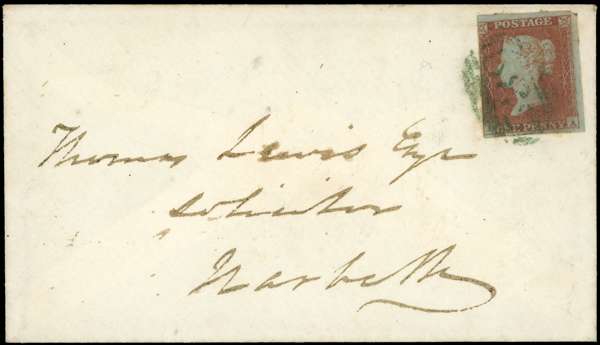 POSTAGE
ONE PENNY
Thomas Lewis Esqr
Solicitor
Narbeth